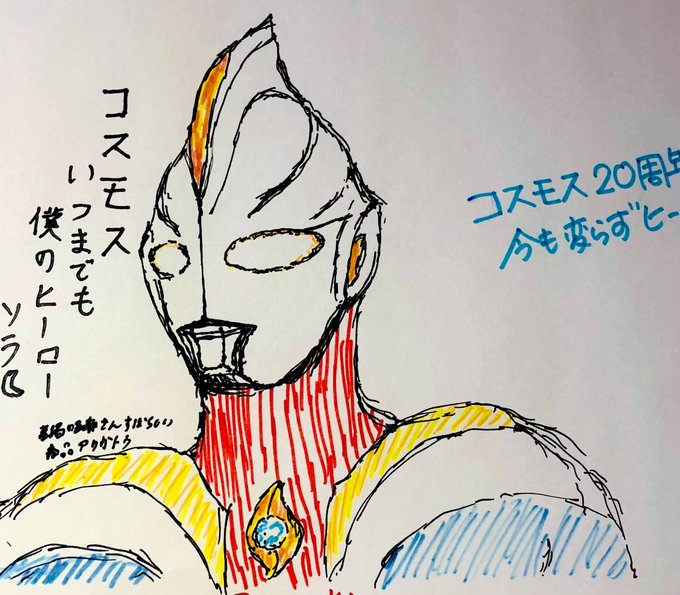 コスモス
いつまでも
僕のヒーロー
ソラ
さんすばらしい
アリガトウ
コスモス20周年
今も変らずヒー